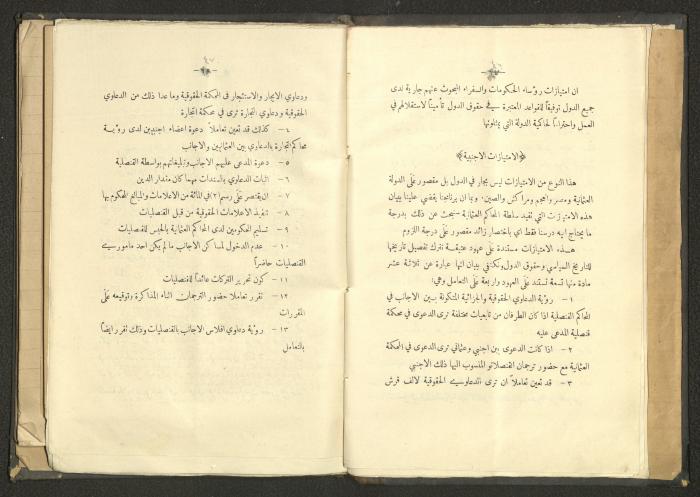 ان امتيازات رؤساء الحكومات والسفراء المبحوث عنهم جارية لدى
جميع الدول توفيقاً للقواعد المعتبرة في حقوق الدول تأميناً لاستقلالهم في
العمل واحتراماً لحاكمية الدولة التي يمثلونها
﴿الامتيازات الاجنبية﴾
هذا النوع من الامتيازات ليس بجار في الدول بل مقصور عَلَى الدولة
العثمانية ومصر والعجم ومراكش والصين. وبما ان برنامجنا يقضي علينا ببيان
هذه الامتيازات التي تقيد سلطة المحاكم العثمانية سنبحث عن ذلك بدرجة
ما يحتاج اليه درسنا فقط اي باختصار زائد مقصور عَلَى درجة اللزوم
هذه الامتيازات مستندة عَلَى عهود عتيقة نترك تفصيل تاريخها
للتاريخ السياسي وحقوق الدول ونكتفي ببيان انها عبارة عن ثلاثة عشر
مادة منها تسعة تستند عَلَى العهود واربعة عَلَى التعامل وهي:
١ – رؤية الدعاوي الحقوقية والجزائية المتكونة بين الاجانب في
المحاكم القنصلية اذا كان الطرفان من تابعيات مختلفة ترى الدعوى في محكمة
قنصلية المدعى عليه
٢ – اذا كانت الدعوى بين اجنبي وعثماني ترى الدعوى في المحكمة
العثمانية مع حضور ترجمان القنصلاتو المنسوب اليها ذلك الاجنبي
٣ – قد تعين تعاملاً ان ترى الدعاوي الحقوقية لالف قرش
٤٧
ودعاوي الايجار والاستئجار في المحكمة الحقوقية وما عدا ذلك من الدعاوي
الحقوقية ودعاوي التجارة ترى في محكمة التجارة
٤ – كذلك قد تعين تعاملاً دعوة اعضاء اجنبيين لدى رؤية
محاكم التجارة بالدعاوي بين العثمانيين والاجانب
٥ – دعوة المدعى عليهم الاجانب وتبليغاتهم بواسطة القنصلية
٦ – اثبات الدعاوي بالسندات مهما كان مقدار الدين
٧ – ان يقتصر عَلَى رسم (٢) في المائة من الاعلامات والمبالغ المحكوم بها
٨ – تنفيذ الاعلامات الحقوقية من قبل القنصليات
٩ – تسليم المحكومين لدى المحاكم العثمانية بالحبس للقنصليات
١٠ – عدم الدخول لمساكن الاجانب ما لم يكن احد مأموري
القنصليات حاضراً
١١ – كون تحرير التركات عائداً للقنصليات
١٢ – تقرر تعاملاً حضور الترجمان اثناء المذاكرة وتوقيعه عَلَى
المقررات
١٣ – رؤية دعاوي افلاس الاجانب بالقنصليات وذلك تقرر ايضاً
بالتعامل